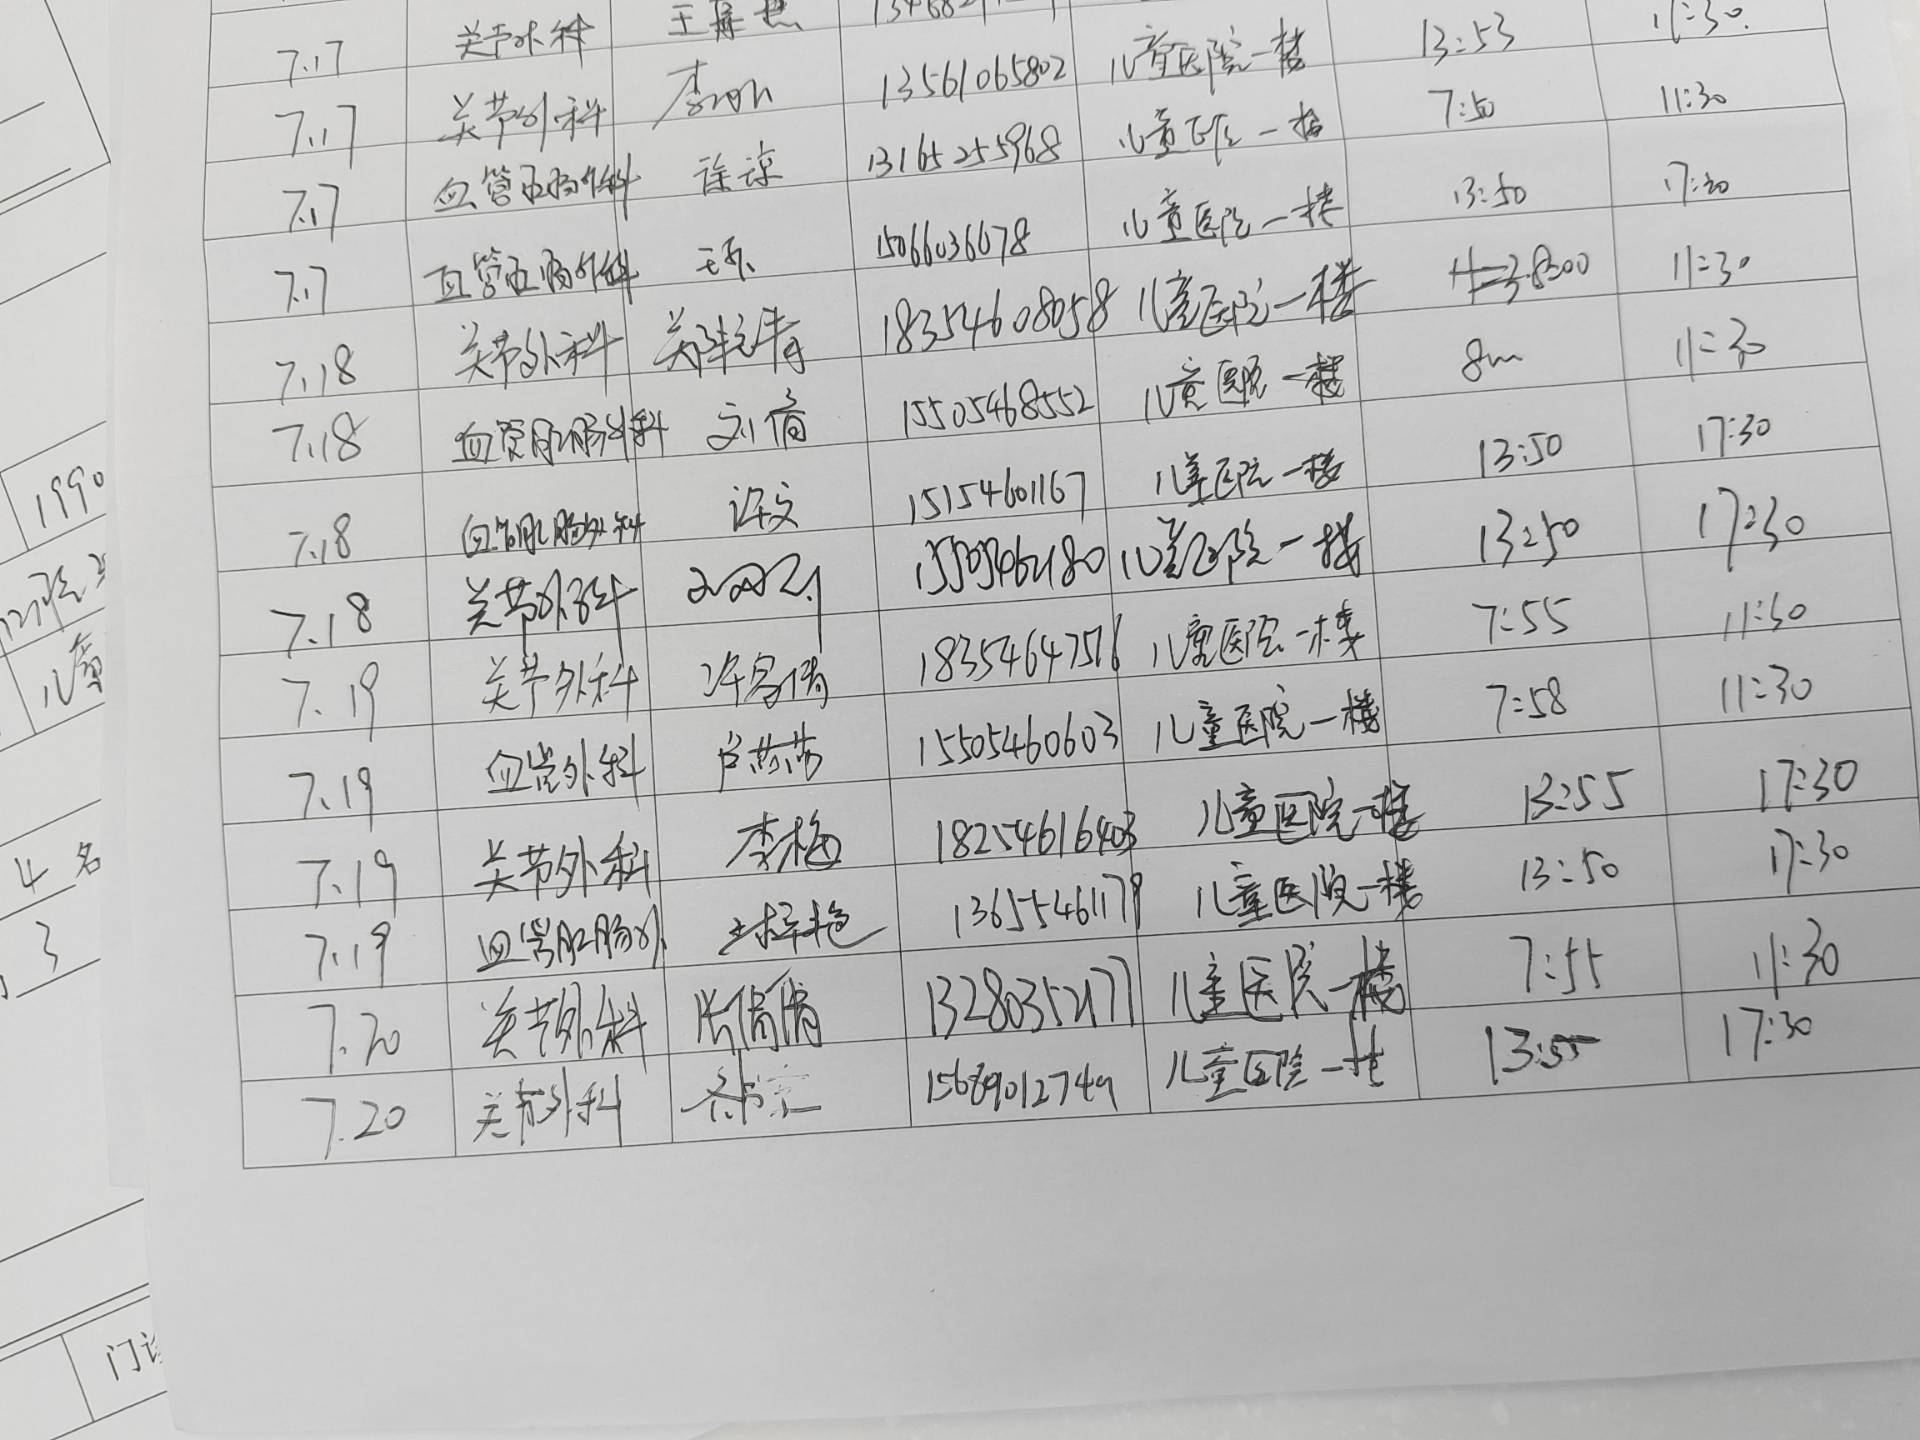 7.17 关节外科 13:53 11:30
7.17 关节外科 李 13561065802 儿童医院一楼 7:50 11:30
7.17 血管肛肠外科 徐谅 13165255968 儿童医院一楼 13:50 17:30
7.17 血管肛肠外科 15066036678 儿童医院一楼 8:00 11:30
7.18 关节外科 18354608058 儿童医院一楼 11:30
7.18 血管肛肠外科 刘倩 15505468552 儿童医院一楼 13:50 17:30
7.18 血管肛肠外科 许文 15154601167 儿童医院一楼 13:50 17:30
7.18 关节外科 儿童医院一楼 7:55 11:30
7.19 关节外科 18354647576 儿童医院一楼 7:58 11:30
7.19 血管外科 卢莎莎 15505460603 儿童医院一楼 13:55 17:30
7.19 关节外科 李梅 18254616403 儿童医院一楼 13:50 17:30
7.19 血管肛肠外 13655461179 儿童医院一楼 7:55 11:30
7.20 关节外科 张倩倩 13280352177 儿童医院一楼 13:55 17:30
7.20 关节外科 15689012749 儿童医院一楼
1990
儿童
4 名
3
门诊